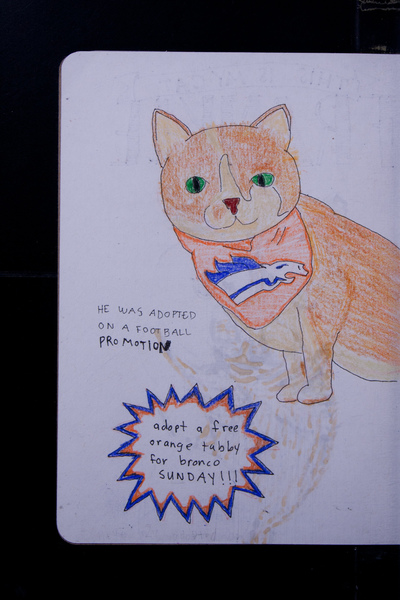 HE WAS ADOPTED
ON A FOOTBALL
PROMOTION
adopt a free
orange tabby
for bronco
SUNDAY!!!